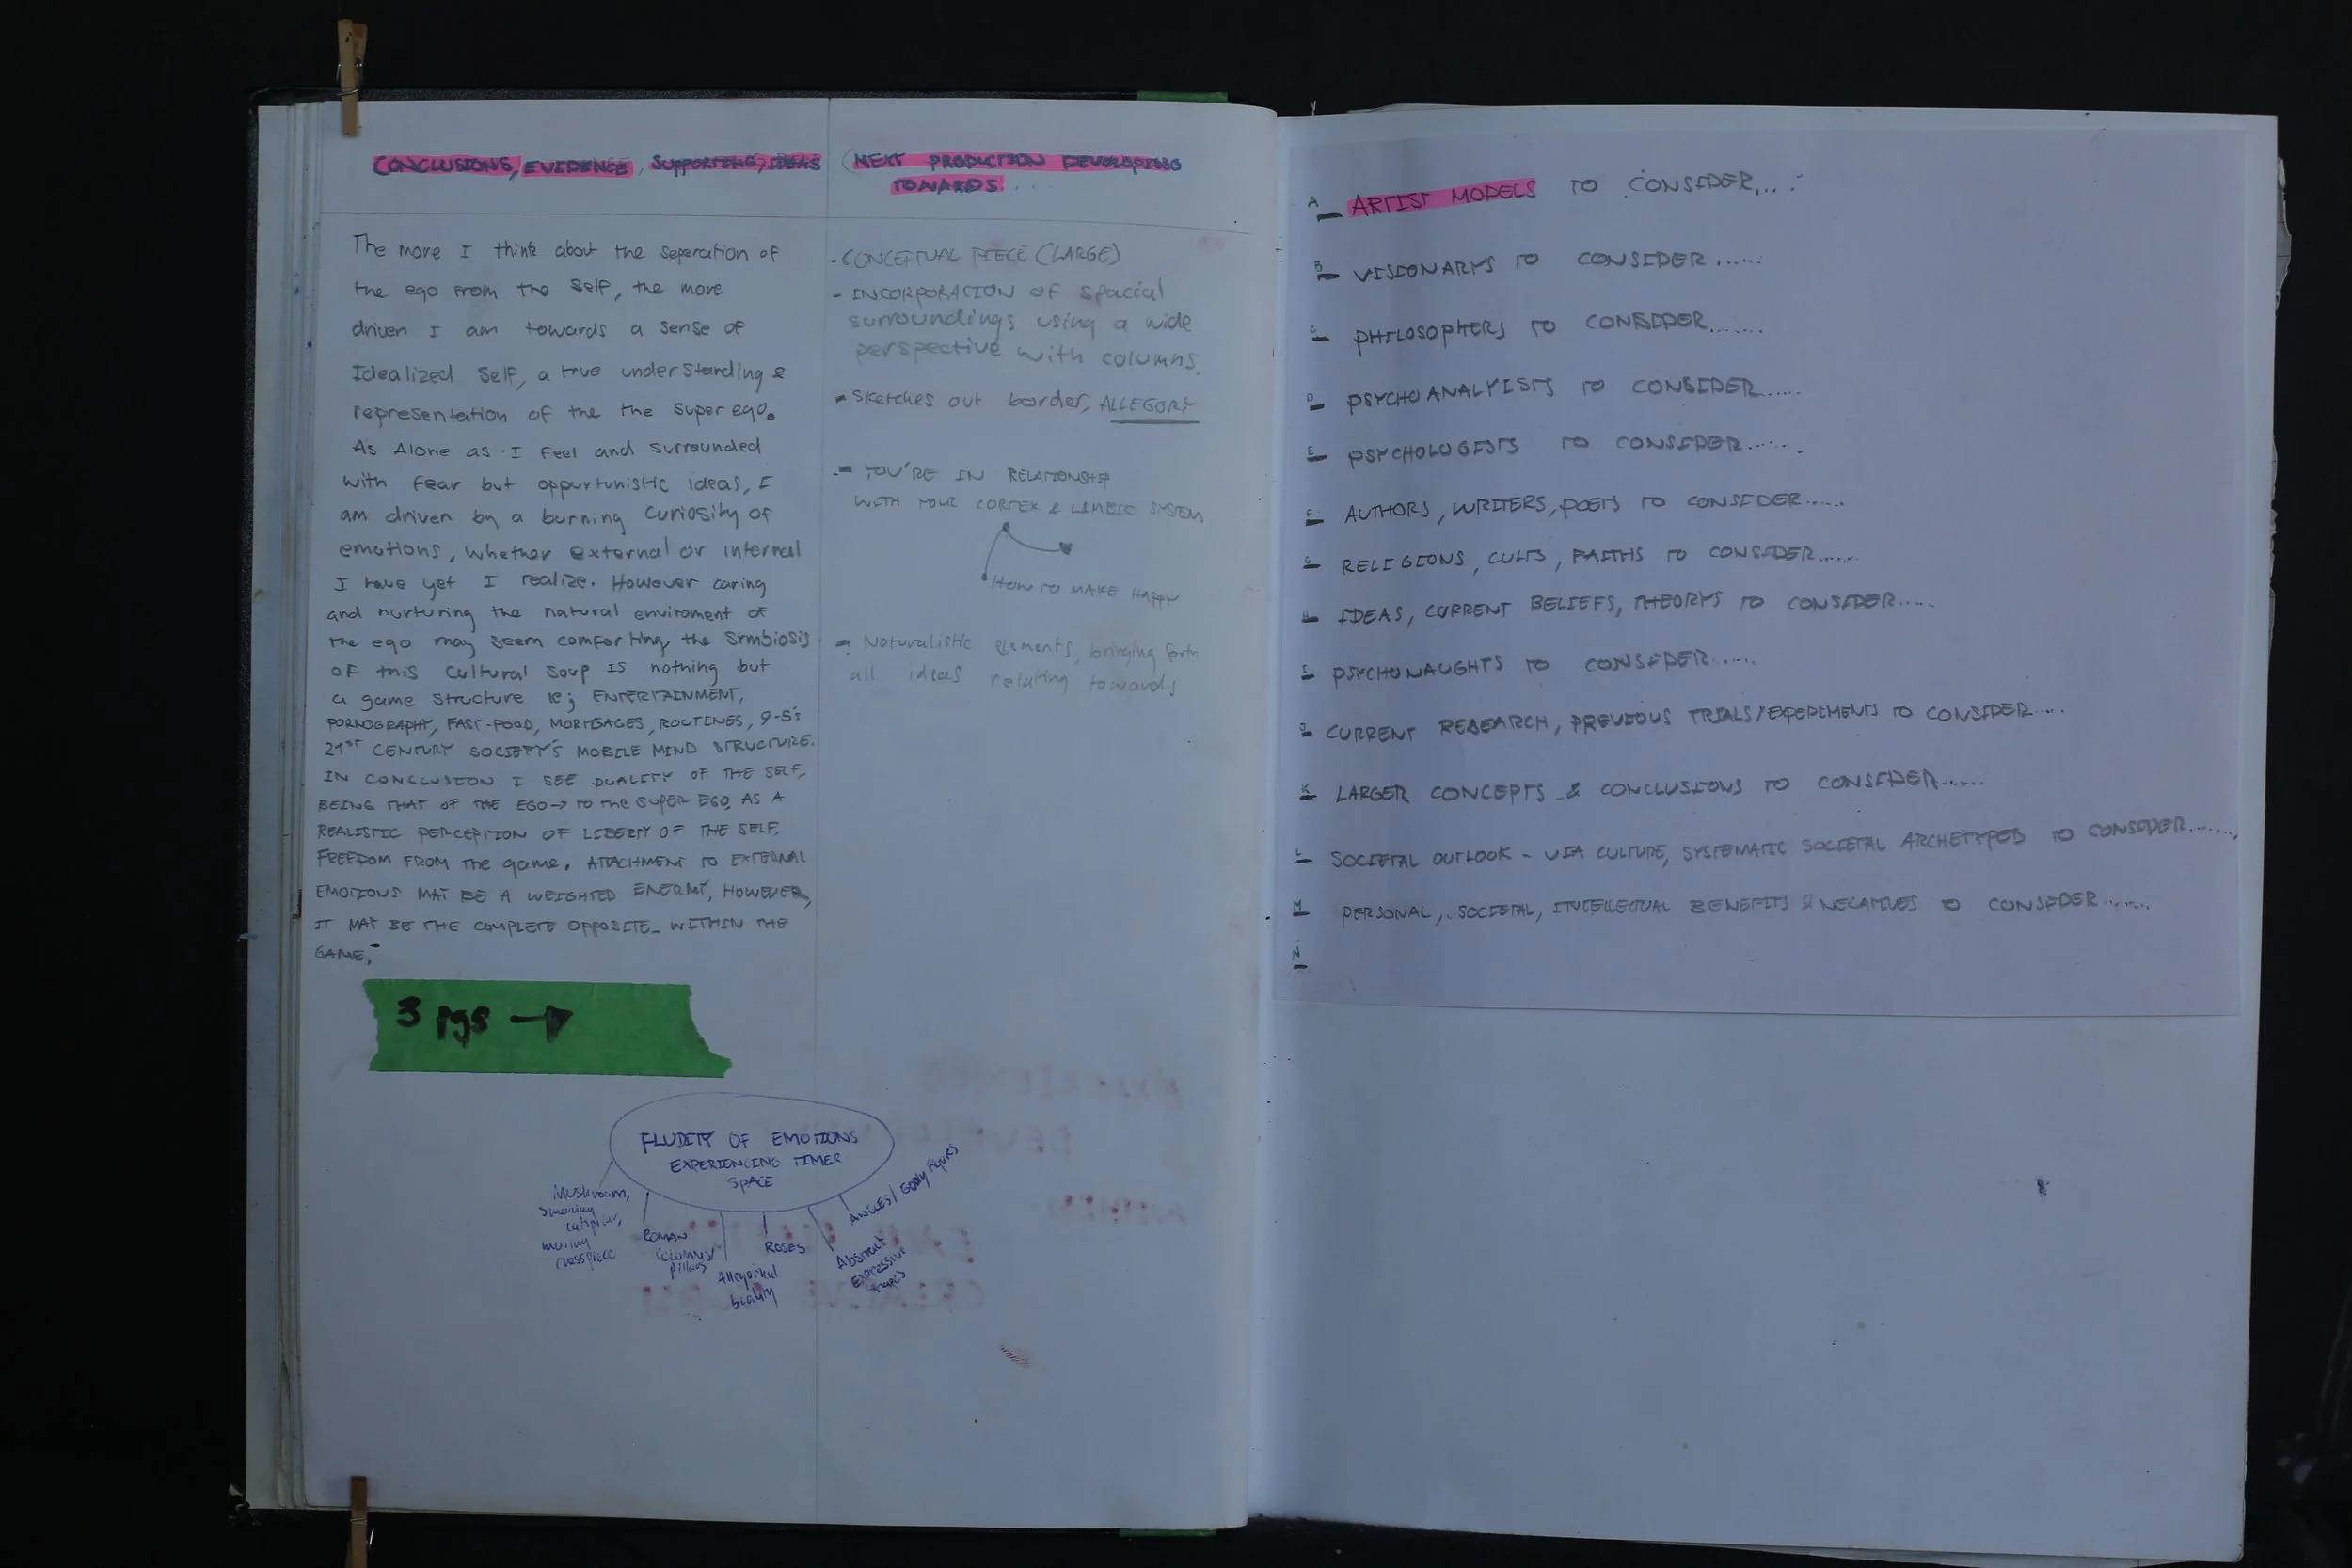 CONCLUSIONS, EVIDENCE, SUPPORTING, IDEAS
The more I think about the seperation of
the ego from the Self, the more
driven I am towards a sense of
Idealized Self, a true understanding &
representation of the the super ego.
As Alone as I feel and surrounded
with fear but oppurtunistic ideas, I
am driven by a burning curiosity of
emotions, whether external or internal
I have yet I realize. However caring
and nurturing the natural enviroment of
the ego may seem comforting, the simbiosis
of this cultural soup is nothing but
a game structure ie; ENTERTAINMENT,
PORNOGRAPHY, FAST-FOOD, MORTGAGES, ROUTINES, 9-5's
21ST CENTURY SOCIETY'S MOBILE MIND STRUCTURE.
IN CONCLUSION I SEE DUALITY OF THE SELF,
BEING THAT OF THE EGO → TO the SUPER EGO, AS A
REALISTIC PERCEPTION OF LIBERTY OF THE SELF,
FREEDOM FROM THE game. ATTACHMENT TO EXTERNAL
EMOTIONS MAY BE A WEIGHTED ENERMY, HOWEVER,
IT MAY BE THE COMPLETE OPPOSITE_ WITHIN THE
GAME,
3 pgs →
FLUDITY OF EMOTIONS
EXPERIENCING TIMES
SPACE
Mushroom,
smoking
moving
chesspiece
ROMAN
columns/
pillars
Allegorikal
beauty
ROSES
Abstract
Expressive
shapes
ANGLES/ figures
(NEXT PRODUCTION DEVELOPING
TOWARDS. . . .
- CONCEPTUAL PIECE (LARGE)
- INCORPORATION OF spacial
surroundings using a wide
perspective with columns.
- Sketches out border, ALLEGORY
- YOU'RE IN RELATIONSHIP
WITH YOUR CORTEX & LIMBIC SYSTEM
HOW TO MAKE HAPPY
- Naturalistic elements, bringing forth
all ideas relating towards
A_ ARTIST MODELS TO CONSIDER....
B_ VISIONARYS TO CONSIDER......
C_ PHILOSOPHERS TO CONSIDER.......
D_ PSYCHOANALYISTS TO CONSIDER......
E_ PSYCHOLOGISTS TO CONSIDER......
F_ AUTHORS, WRITERS, POETS TO CONSIDER......
G_ RELIGIONS, CULTS, FAITHS TO CONSIDER......
H_ IDEAS, CURRENT BELIEFS, THEORYS TO CONSIDER.....
I_ PSYCHONAUGHTS TO CONSIDER......
J_ CURRENT RESEARCH, PREVIOUS TRIALS/EXPERIMENTS TO CONSIDER.....
K_ LARGER CONCEPTS & CONCLUSIONS TO CONSIDER......
L_ SOCIETAL OUTLOOK - VIA CULTURE, SYSTEMATIC SOCIETAL ARCHETYPES TO CONSIDER.......
M_ PERSONAL, SOCIETAL, INTELLECTUAL BENEFITS & NEGATIVES TO CONSIDER.......
N_